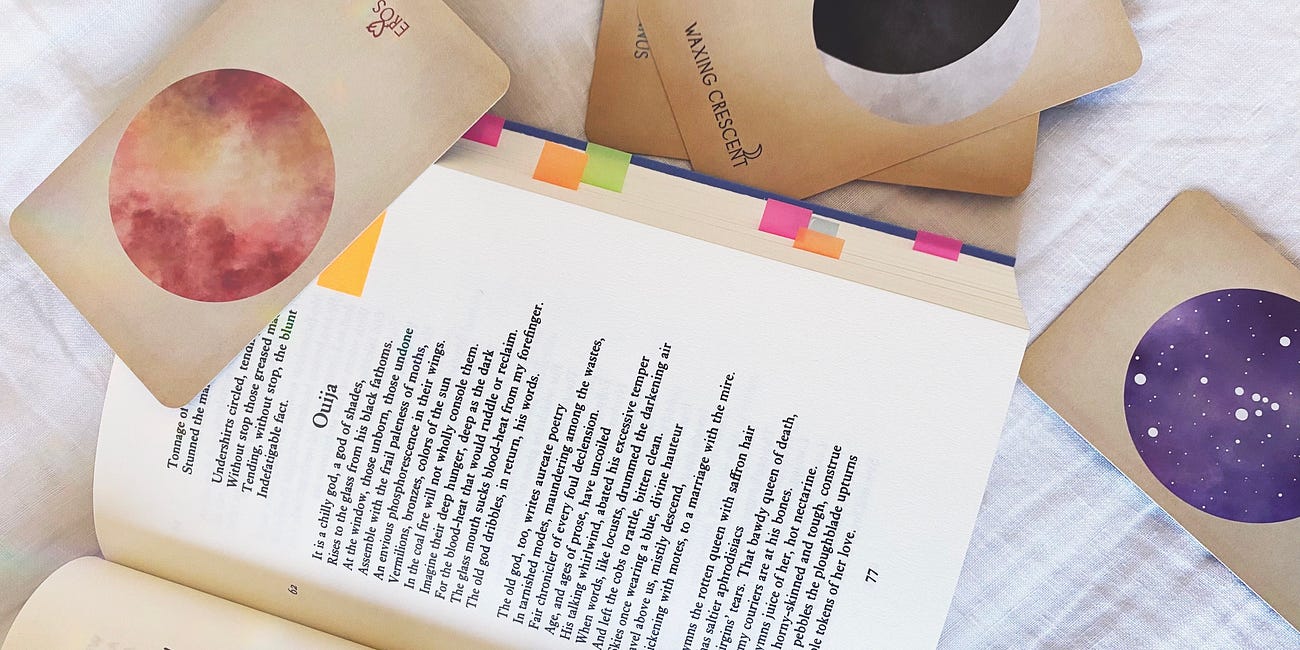 EROS
WAXING CRESCENT
Tonnage of
Stunned the
Undershirts circled,
Without stop those greased
Tending, without stop, the blunt
Indefatigable fact.
Ouija
It is a chilly god, a god of shades,
Rises to the glass from his black fathoms.
At the window, those unborn, those undone
Assemble with the frail paleness of moths,
An envious phosphorescence in their wings.
Vermilions, bronzes, colors of the sun
In the coal fire will not wholly console them.
Imagine their deep hunger, deep as the dark
For the blood-heat that would ruddle or reclaim.
The glass mouth sucks blood-heat from my forefinger.
The old god dribbles, in return, his words.
The old god, too, writes aureate poetry
In tarnished modes, maundering among the wastes,
Fair chronicler of every foul declension.
Age, and ages of prose, have uncoiled
His talking whirlwind, abated his excessive temper
When words, like locusts, drummed the darkening air
And left the cobs to rattle, bitten clean.
once wearing a blue, divine hauteur
above us, mistly descend,
with motes, to a marriage with the mire.
the rotten queen with saffron hair
has saltier aphrodisiacs
tears. That bawdy queen of death,
my couriers are at his bones.
juice of her, hot nectarine.
horny-skinned and tough, construe
pebbles the ploughblade upturns
tokens of her love.
77
62